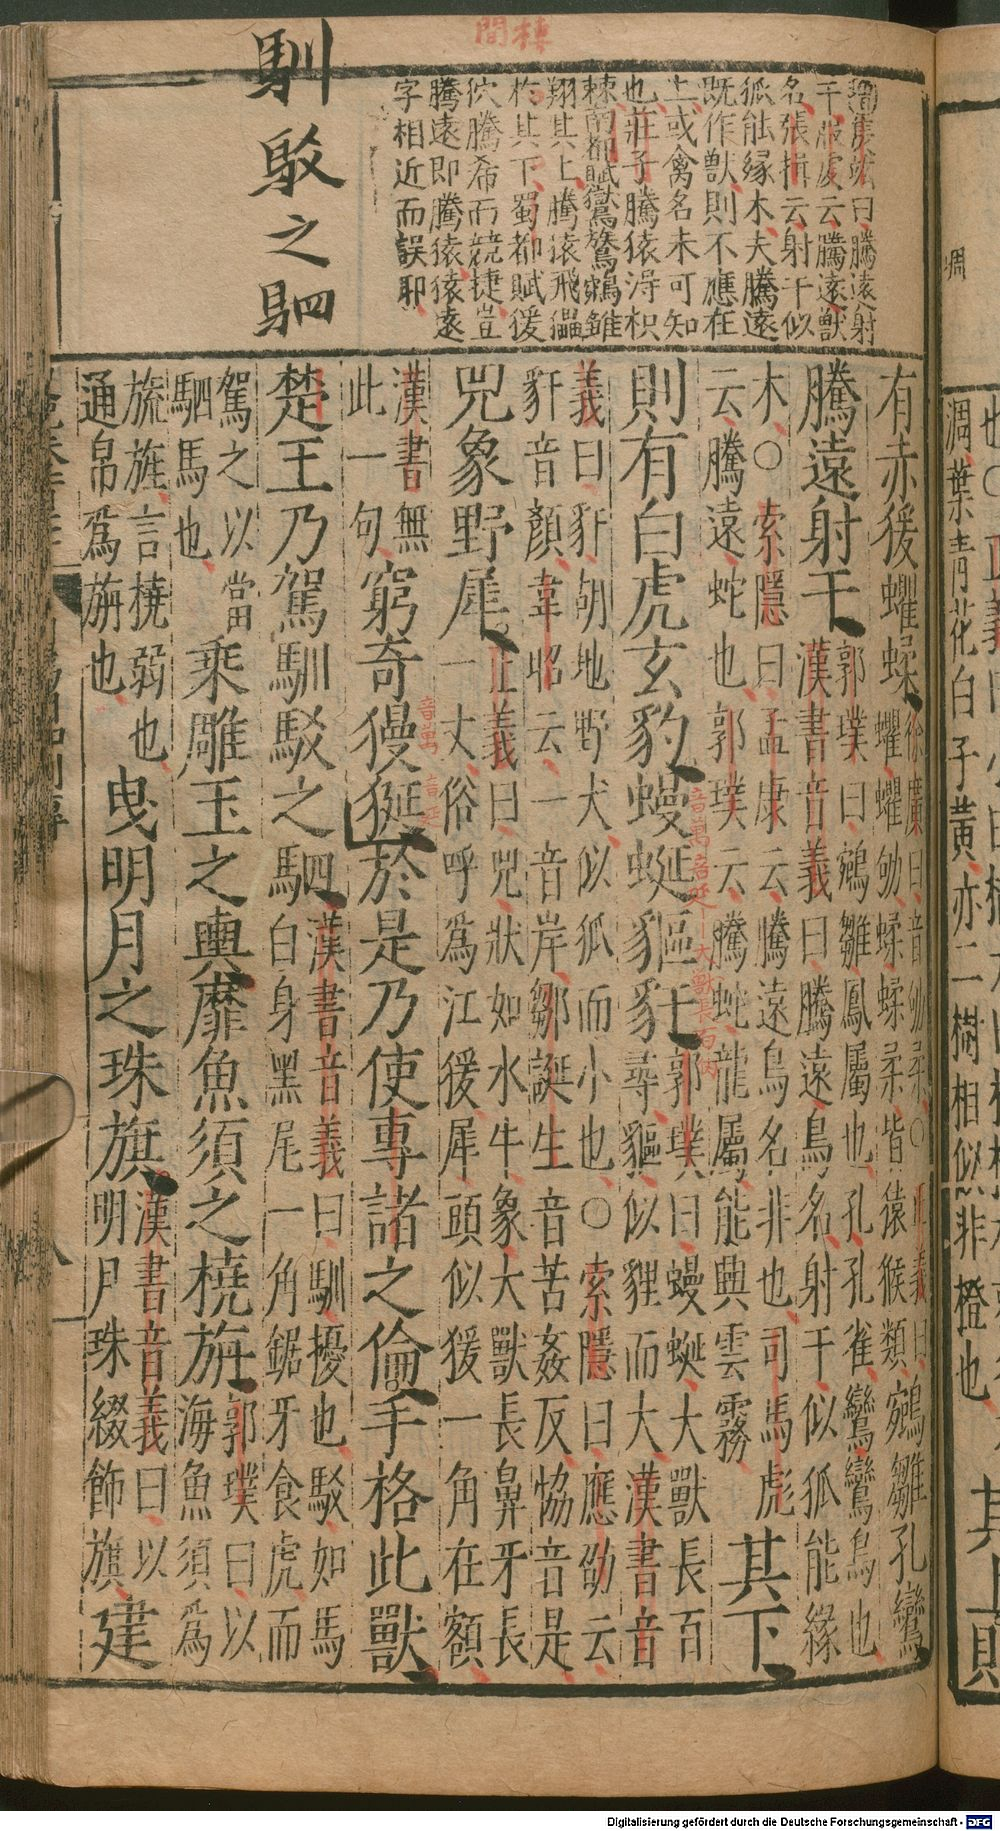 棲間
瓚案㳂曰騰遠射
干服虔云騰遠獸
名張揖云射干似
狐能緣木夫騰遠
既作獸則不應在
上或禽名未可知
也莊子騰猿得枳
棘而都賦鸑鷟鵷雛
翔其上騰猿飛𤣎
栖其下蜀都賦猨
狖騰希而競捷豈
騰遠即騰猿猿遠
字相近而誤耶
馴駮之駟
有赤猨蠷蝚
徐廣曰音劬柔○正義曰鵷雛孔鸞
蠷蠷劬蝚蝚柔皆猿猴類
郭璞曰鵷雛鳳屬也孔孔雀鸞鸞鳥也
騰遠射干
漢書音義曰騰遠鳥名射干似狐能緣
木○索隱曰孟康云騰遠鳥名非也司馬彪
云騰遠蛇也郭璞云騰蛇龍屬能興雲霧
其下
則有白虎玄豹蟃蜒貙豻
郭璞曰蟃蜒大獸長百
尋貙似貍而大漢書音
義曰豻胡地野犬似狐而小也○索隱曰應劭云
豻音顏韋昭云一音岸鄒誕生音苦姦反恊音是
音萬 音延 大獸長百
兕象野犀
正義曰兕狀如水牛象大獸長鼻牙長
一丈俗呼爲江猨犀頭似猨一角在額
漢書無
此一句
窮奇獌狿
音萬 音延
於是乃使專諸之倫手格此獸
楚王乃駕馴駮之駟
漢書音義曰馴擾也駮如馬
白身黑尾一角鋸牙食虎而
駕之以當
駟馬也
乘雕玉之輿靡魚須之橈旃
郭璞曰以
海魚須爲
旒旌言橈弱也
通帛爲旃也
曳明月之珠旗
漢書音義曰以
明月珠綴飾旗
建
凋
凋葉青花白子黃亦二樹相似非橙也
其上則
Digitalisierung gefördert durch die Deutsche Forschungsgemeinschaft - DFG